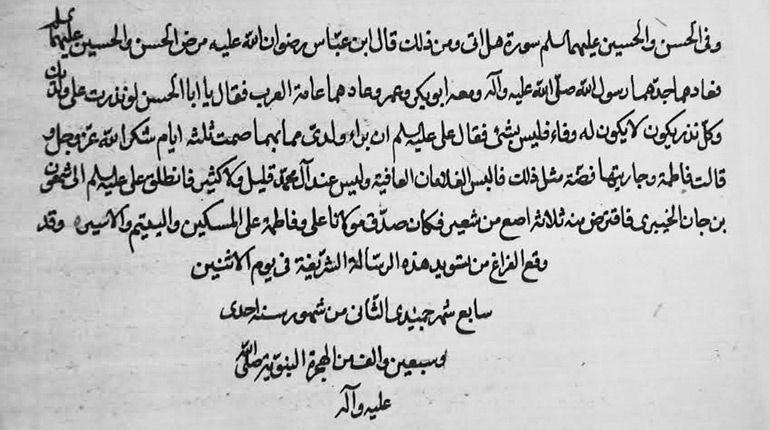 وفى الحسن والحسين عليهما السلم سورة هل اتى ومن ذلك قال ابن عباس رضوان الله عليه مرض الحسن والحسين عليهما السلم
فعادهما جدهما رسول الله صلى الله عليه وآله ومعه ابو بكر وعمر وعادهما عامة العرب فقال يا ابا الحسن لو نذرت على ولديك
وكل نذر يكون لا يكون له وفاء فليس بشئ فقال على عليه سلم ان براء ولدى مما بهما صمت ثلثه ايام شكرا لله عز وجل و
قالت فاطمة وجاريتها فضة مثل ذلك فالبس الغلامان العافية وليس عند آل محمد قليل ولا كثير فانطلق على عليه سلم الى شمعون
بن حان الخيبرى فاقترض منه ثلاثه اصع من شعير فكان صدق مولانا على وفاطمة على المسكين واليتيم والاسير وقد
وقع الفراغ من تسويد هذه الرسالة الشريفة فى يوم الاثنين
سابع شهر جميدى الثانى من شهور سنه احدى
وسبعين والف من الهجرة النبويه صلى الله
عليه وآله